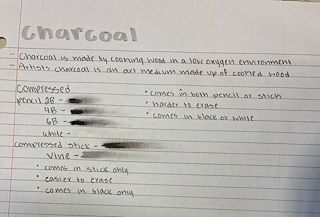 Charcoal
- Charcoal is made by cooking wood in a low oxygen environment
- Artists charcoal is an art medium made up of cooked wood
Compressed
pencil 2B -
4B -
6B -
white -
compressed stick -
• comes in both pencil or stick
• harder to erase
• comes in black or white
Vine -
• comes in stick only
• easier to erase
• comes in black only